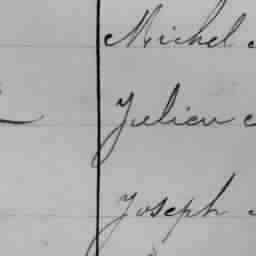 Michel
Julien
Joseph